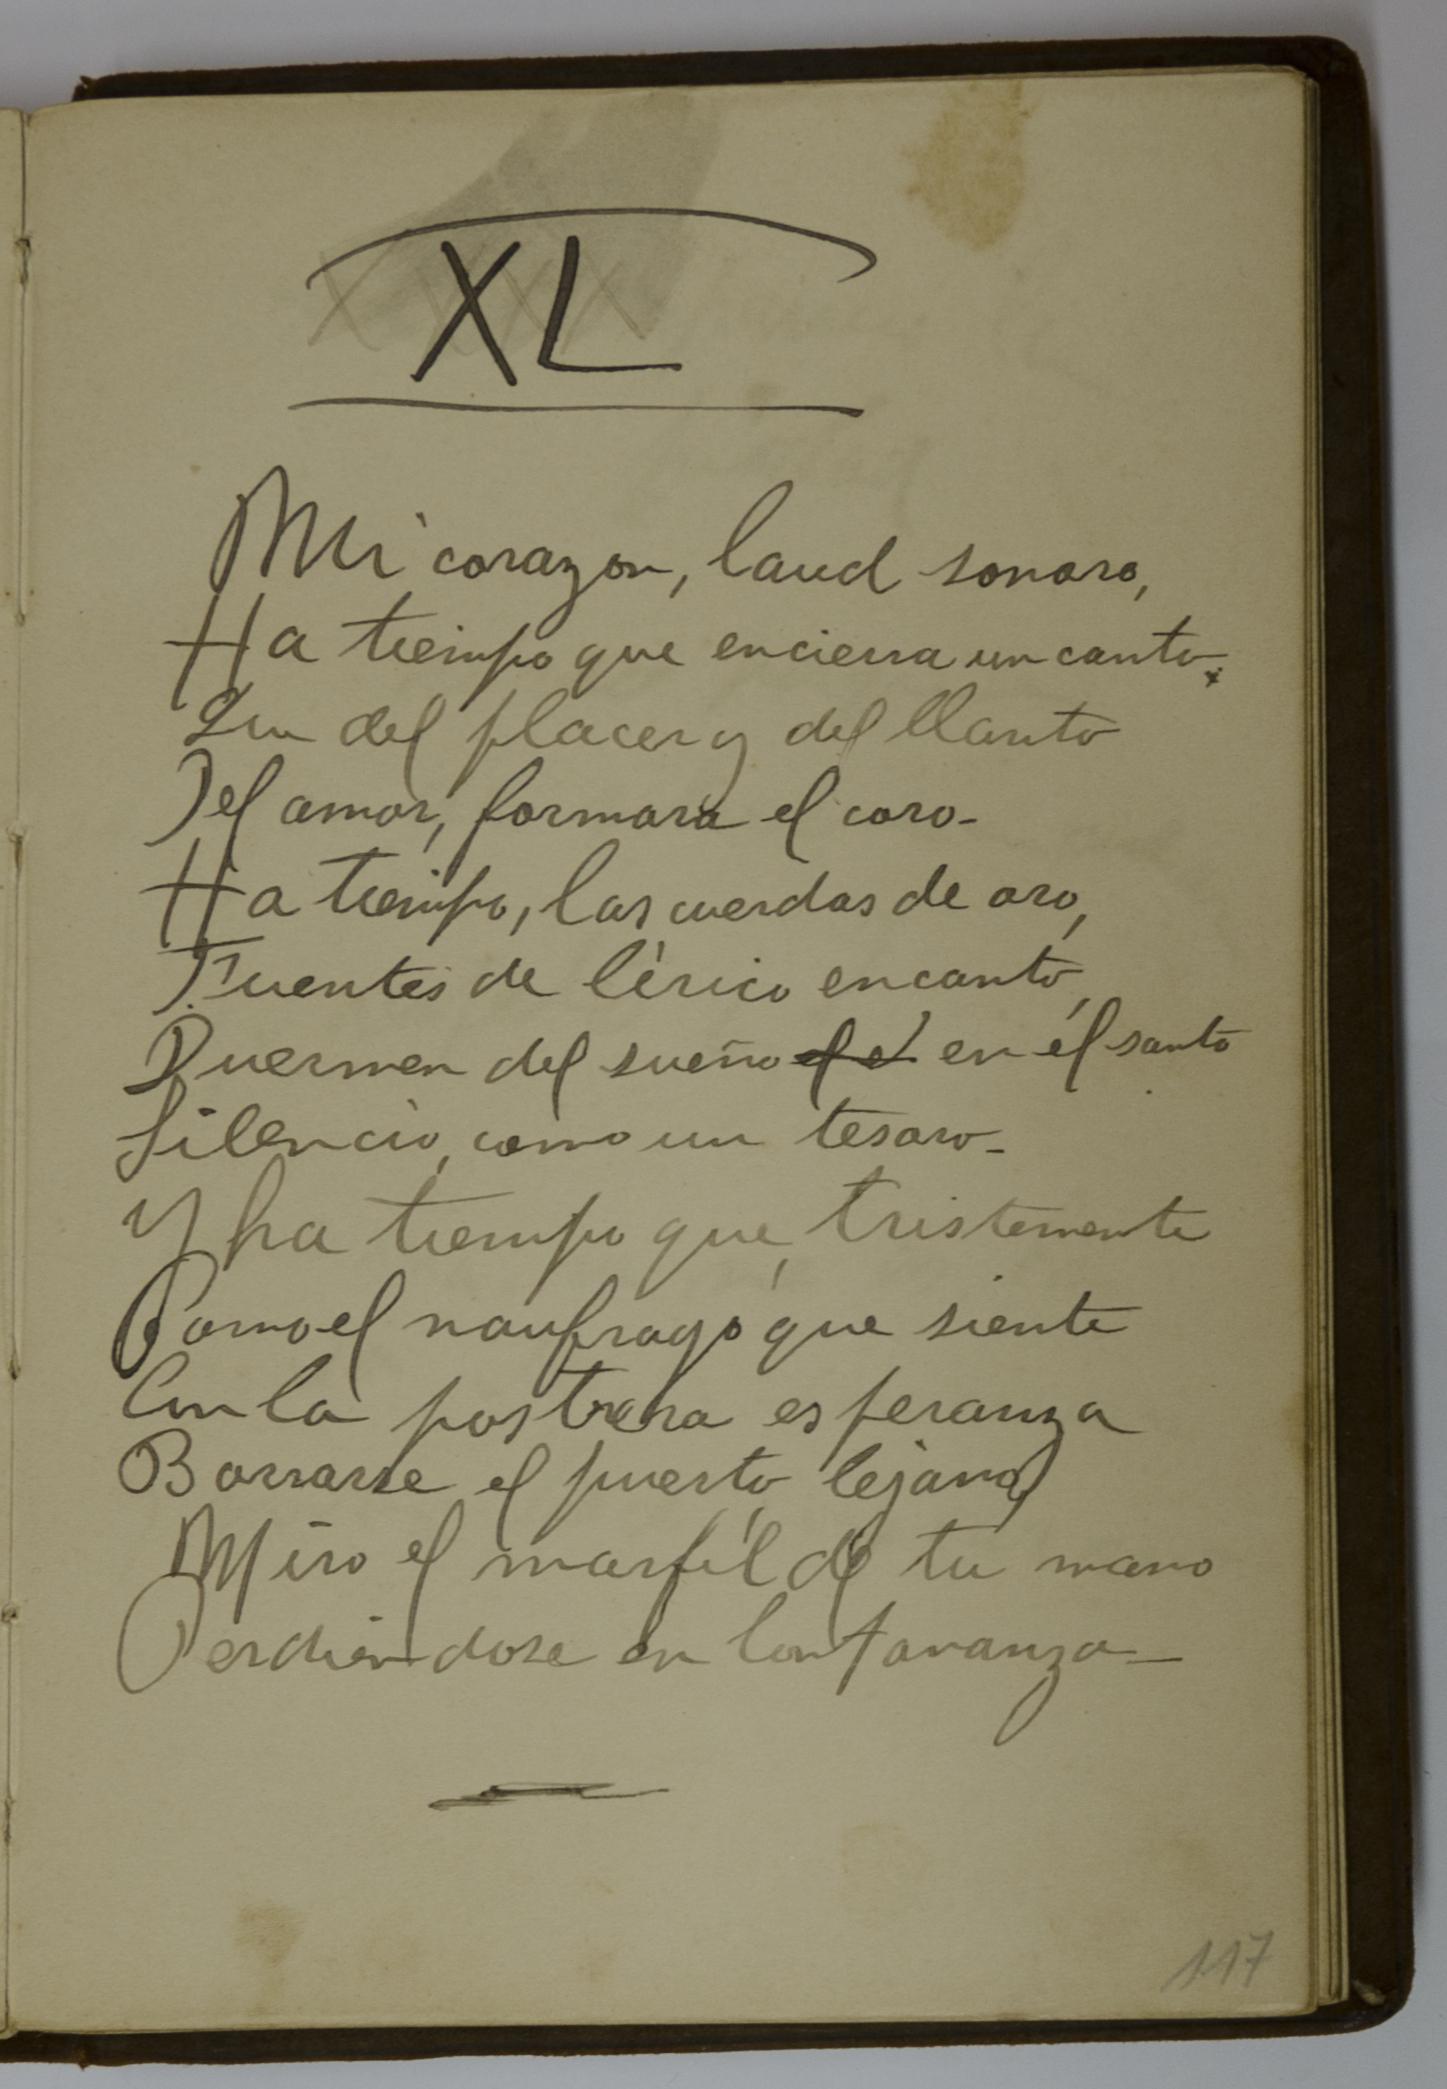 XL
Mi corazon, laud sonoro,
Ha tiempo que encierra un canto
Que del placer y del llanto
Del amor, formara el coro-
Ha tiempo, las cuerdas de oro,
Fuentes de lírico encanto,
Duermen del sueño en él santo
Silencio, como un tesoro-
Y ha tiempo que, tristemente
Como el naufrago que siente
Con la postrera esperanza
Borrarse el puerto lejano,
Miro el marfil de tu mano
Perdiéndose en lontananza-
117